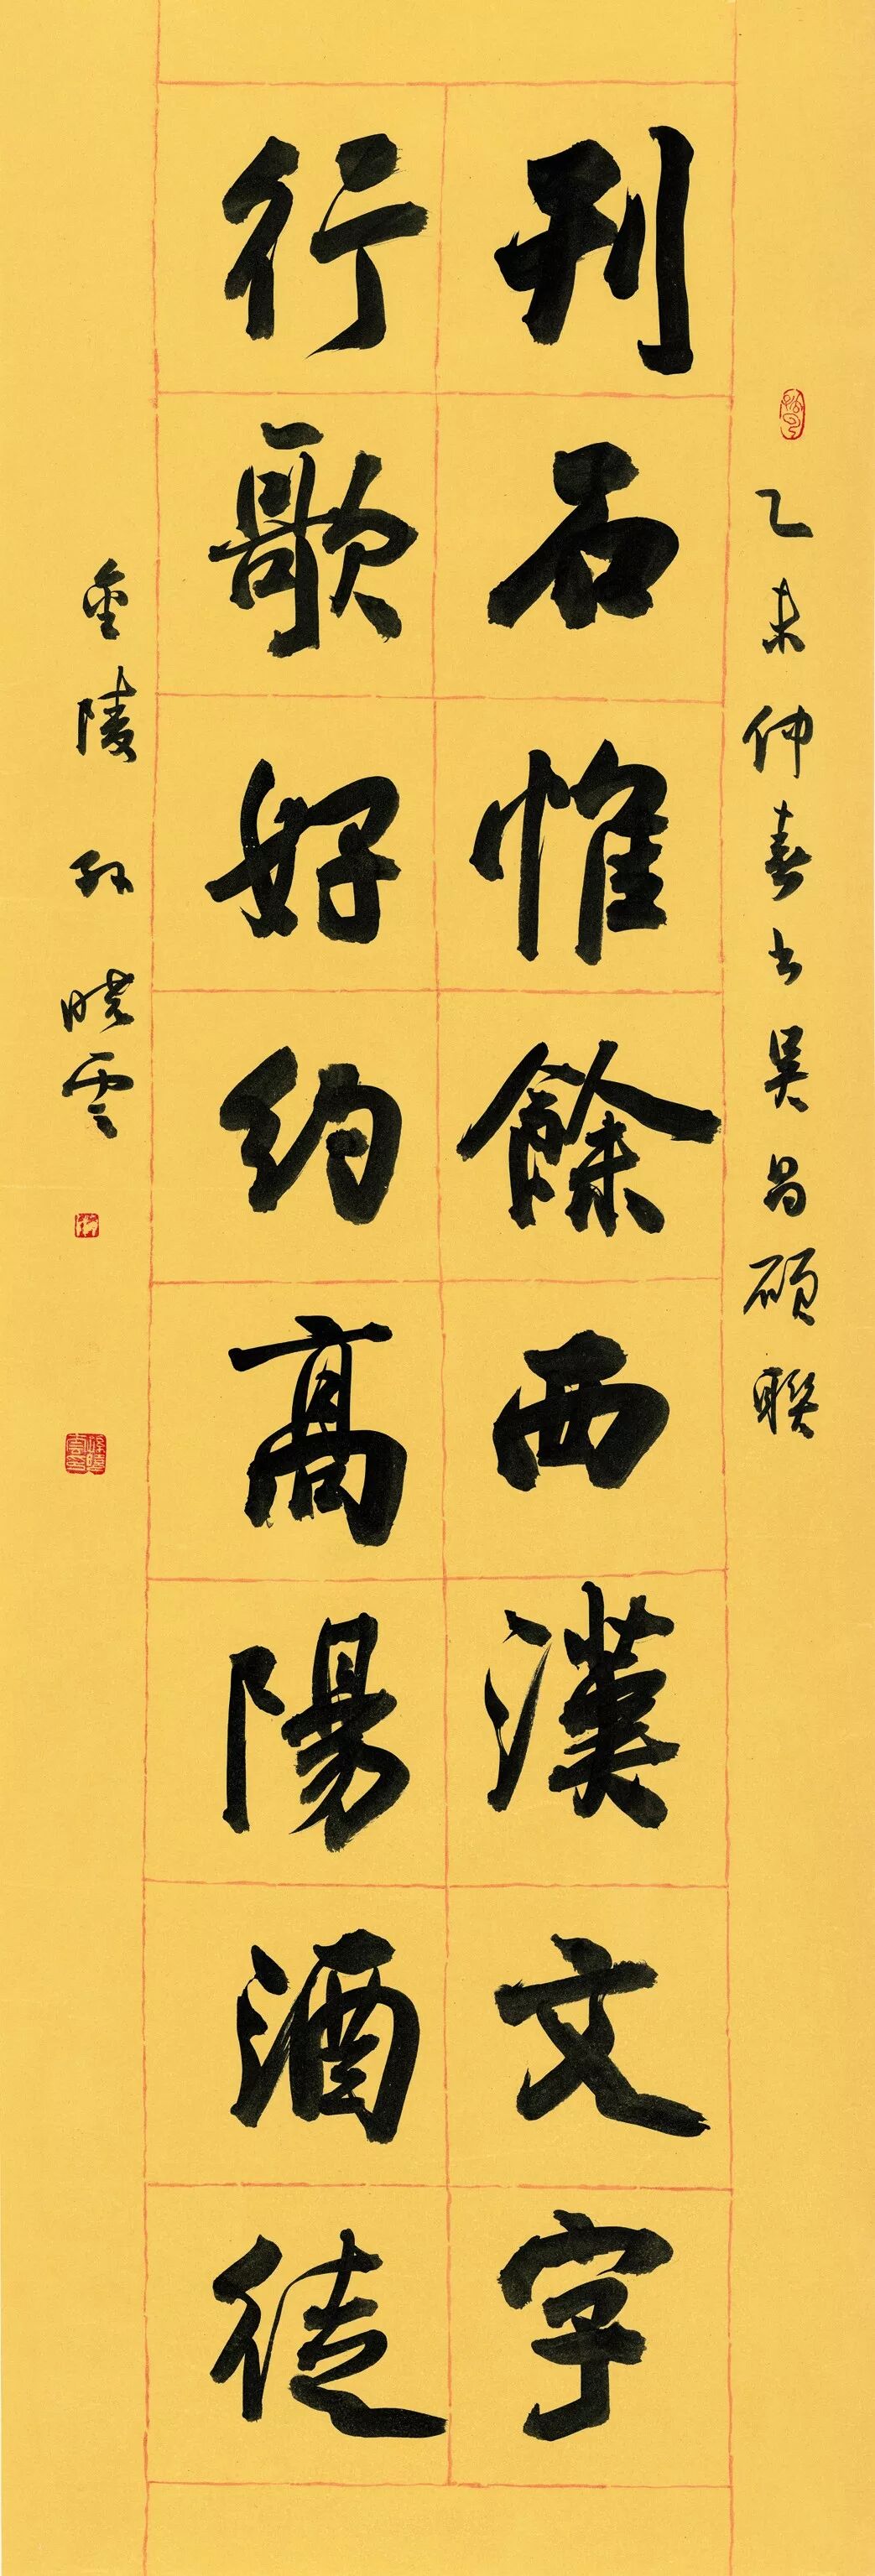 刊石惟餘西漢文字
行歌好約高陽酒徒
乙未仲春書吳昌碩聯
金陵孫曉雲